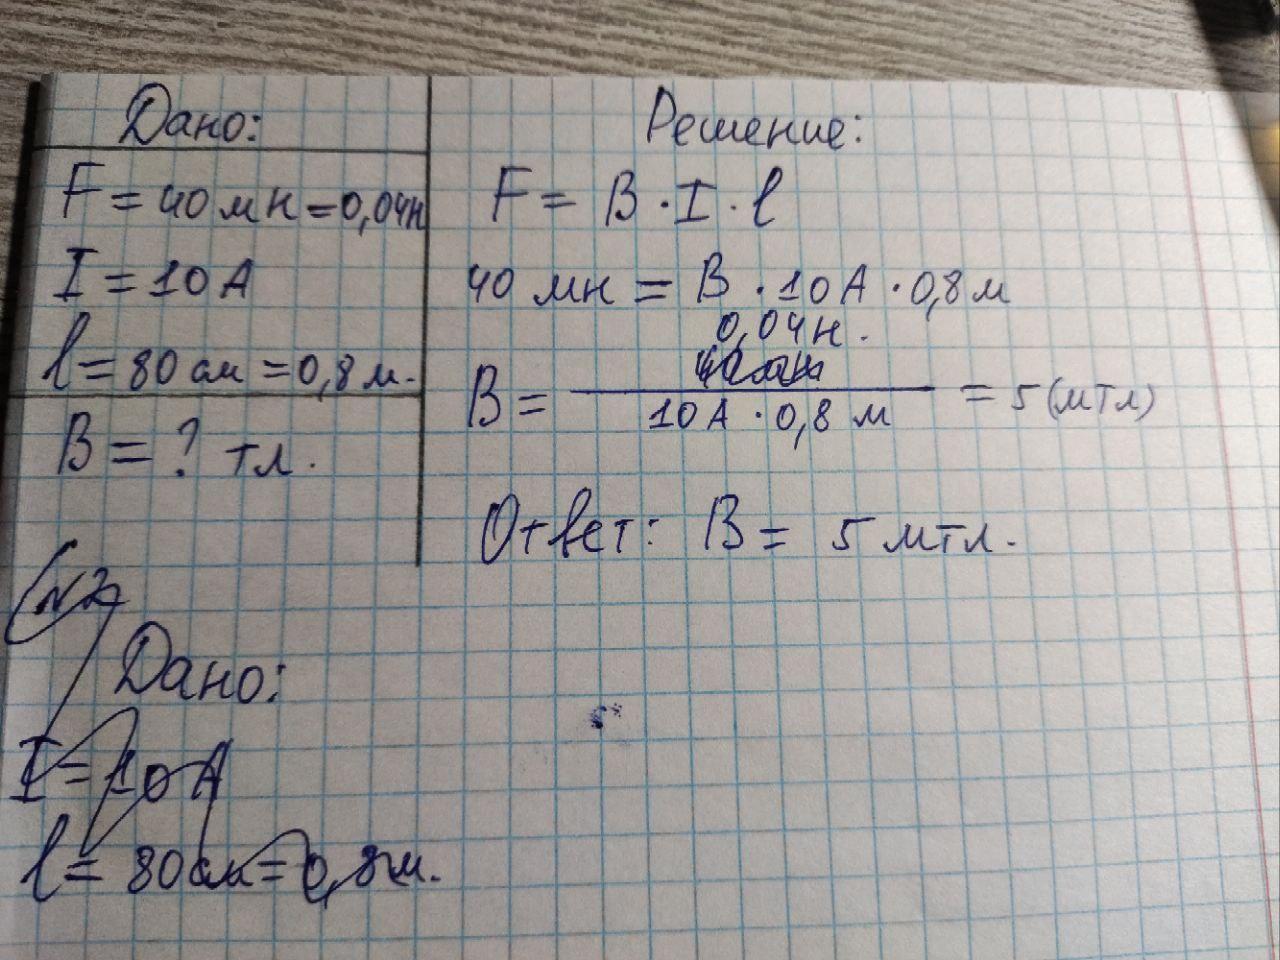 Дано:
F = 40 мн = 0,04н
I = 10 А
l = 80 см = 0,8 м.
B = ? тл.
Решение:
F = B · I · l
40 мн = B · 10 А · 0,8 м
0,04 н.
B = ———— = 5 (мтл)
10 А · 0,8 м
Ответ: B = 5 мтл.
N2
Дано:
I = 10 А
l = 80 см = 0,8 м.